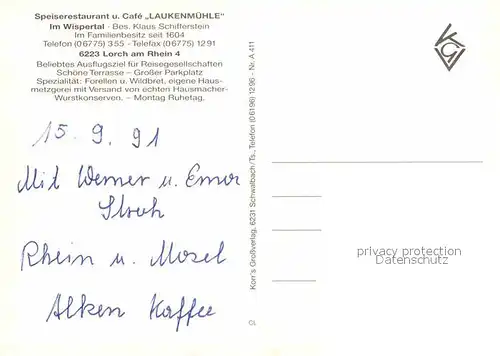 Speiserestaurant u. Café „LAUKENMÜHLE"
Im Wispertal - Bes. Klaus Schifferstein
Im Familienbesitz seit 1604
Telefon (06775) 355 - Telefax (06775) 1291
6223 Lorch am Rhein 4
Beliebtes Ausflugsziel für Reisegesellschaften
Schöne Terrasse – Großer Parkplatz
Spezialität: Forellen u. Wildbret, eigene Haus-
metzgerei mit Versand von echten Hausmacher-
Wurstkonserven. – Montag Ruhetag.
15. 9. 91
Mit Werner u.
Rhein u. Mosel
Alken Kaffee
Korr's Großverlag, 6231 Schwalbach/Ts., Telefon (06196) 1296 - Nr. A 411
privacy protection
Datenschutz